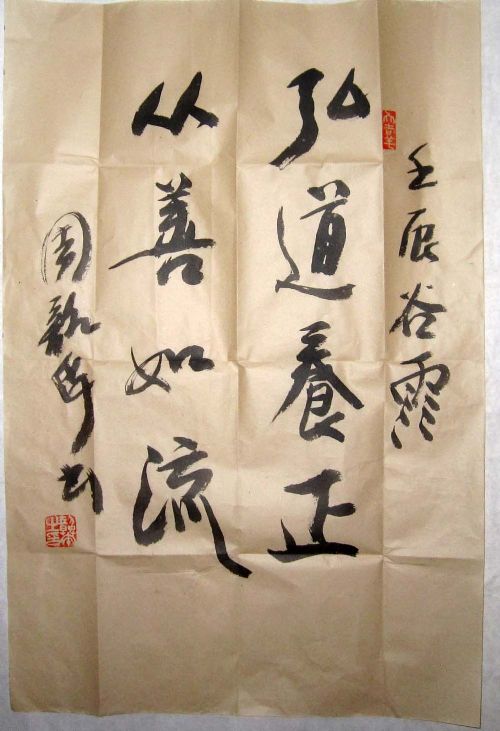 壬辰谷雨
弘道養正
从善如流
周
书